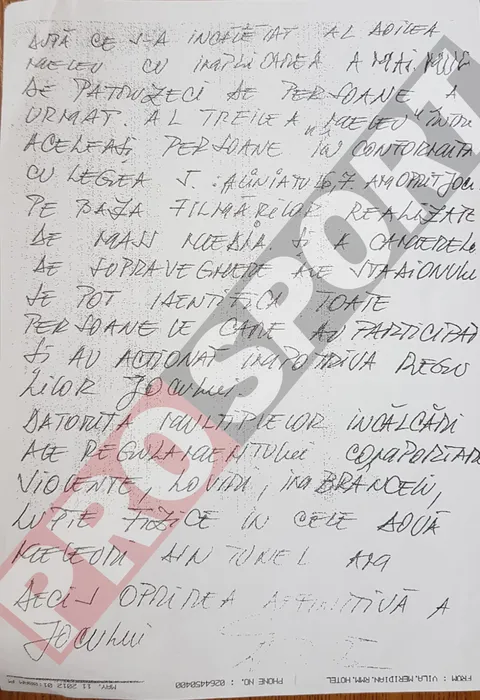 DUPĂ CE S-A INCHEIAT AL DOILEA
MELEU CU IMPLICAREA A MAI MULT
DE PATRUZECI DE PERSOANE A
URMAT AL TREILEA "MELEU" INTRE
ACELEAȘI PERSOANE ÎN CONFORMITA
CU LEGEA 5. 6,7. AM OPRIT JOCU
PE BAZA FILMĂRILOR REALIZATE
DE MASS MEDIA ȘI A CAMERELO
DE SUPRAVEGHERE ALE STADIONULU
SE POT IDENTIFICA TOATE
PERSOANELE CARE AU PARTICIPAT
ȘI AU ACTIONAT IMPOTRIVA REGU
LILOR JOCULUI
DATORITA MULTIPLELOR INCĂLCĂRI
ALE REGULAMENTULUI COMPORTARI
VIOLENTE, LOVIRI, IMBRANCELI,
LUPTE FIZICE IN CELE DOUĂ
MELEURI DIN TUNEL AM
DECIS OPRIREA DEFINITIVĂ A
JOCULUI
PROSPORT
FROM : VILA, MERIDIAN, RMM, HOTEL PHONE NO. : 0264450400 MAY. 11 2012 01:00AM P1